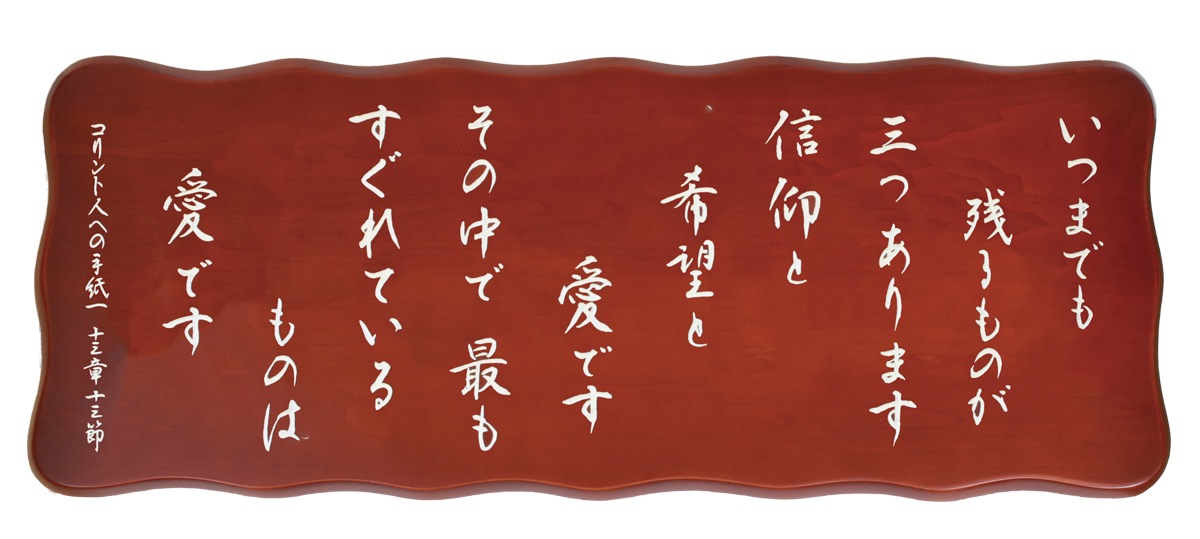 いつまでも
残るものが
三つあります
信仰と
希望と
愛です
その中で 最も
すぐれている
ものは
愛です
コリント人への手紙一 十三章十三節